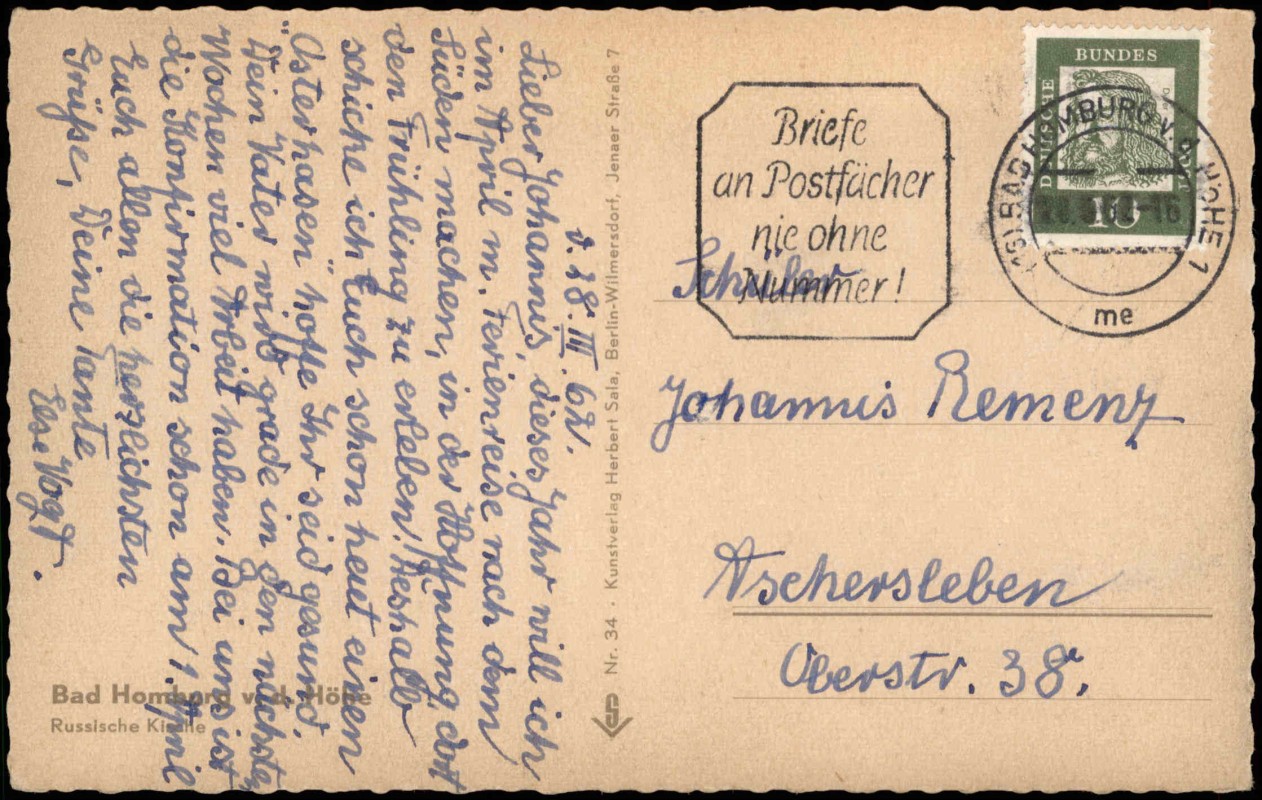 d. 28. III. 62.
Lieber Johannis, dieses Jahr will ich
im April m. Ferienreise nach dem
Süden machen, in der Hoffnung dort
den Frühling zu erleben! Deshalb
schicke ich Euch schon heut einen
"Osterhasen" hoffe Ihr seid gesund.
Dein Vater wird grade in den nächsten
Wochen viel Arbeit haben. Bei uns ist
die Konfirmation schon am 1. April
Euch allen die herzlichsten
Grüße, Deine Tante
Else Vogt.
Bad Homburg v. d. Höhe
Russische Kirche
Nr. 34 · Kunstverlag Herbert Sala, Berlin-Wilmersdorf, Jenaer Straße 7
Briefe
an Postfächer
nie ohne
Nummer!
DEUTSCHE
BUNDES
POST
10
(16) BAD HOMBURG v. d. HÖHE 1
me
Schüler
Johannis Remenz
Aschersleben
Oberstr. 38.